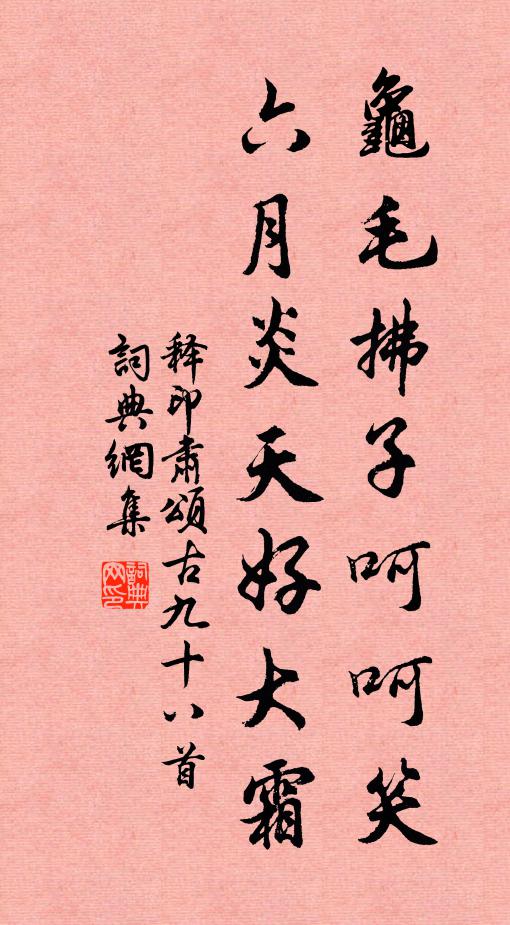 龜毛拂子呵呵笑
六月炎天好大霜
释印肅頌古九十八首
詞典網集
詞典
网印